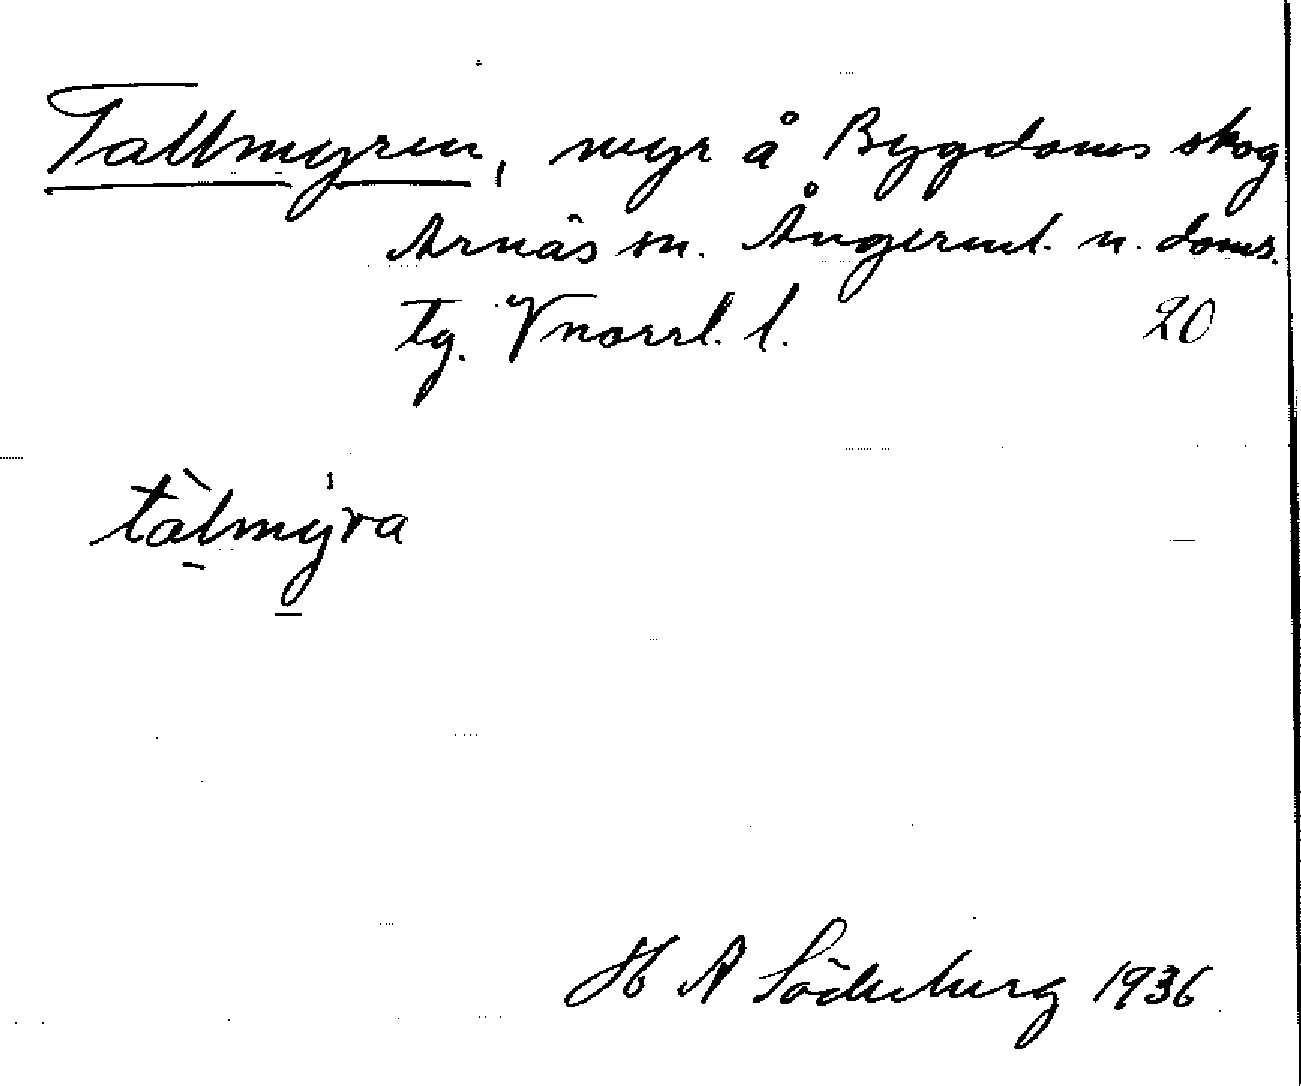 Tallmyren, myr å Bygdoms skog
Arnäs sn. Ångerml. n. doms.
tg. Vnorrl. l. 20
tàlmýra
H A Söderberg 1936